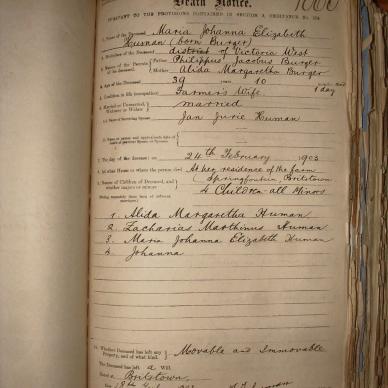 Death Notice.
PURSUANT TO THE PROVISIONS CONTAINED IN SECTION
1. Name of the Deceased Maria Johanna Elizabeth
Human (born Burger)
2. Birthplace of the Deceased district of Victoria West
3. Names of the Parents of the Deceased. Father Philippus Jacobus Burger
Mother Alida Margaretha Burger
4. Age of the Deceased 39 years 10
1 day
5. Condition in life (occupation) Farmer's Wife
6. Married or Unmarried, Widower or Widow married
Name of Surviving Spouse Jan Jurie Human
The day of the decease on 24th February 1903
At what House or where the person died At her residence of the farm
Springfontein, Britstown
Names of Children of Deceased, and whether majors or minors 4 Children all Minors
1. Alida Margaretha Human
2. Zacharias Marthinus Human
3. Maria Johanna Elizabeth Human
4. Johanna
Whether Deceased has left any Property, and of what kind. Movable and Immovable
The Deceased has left a Will.
Dated at Britstown